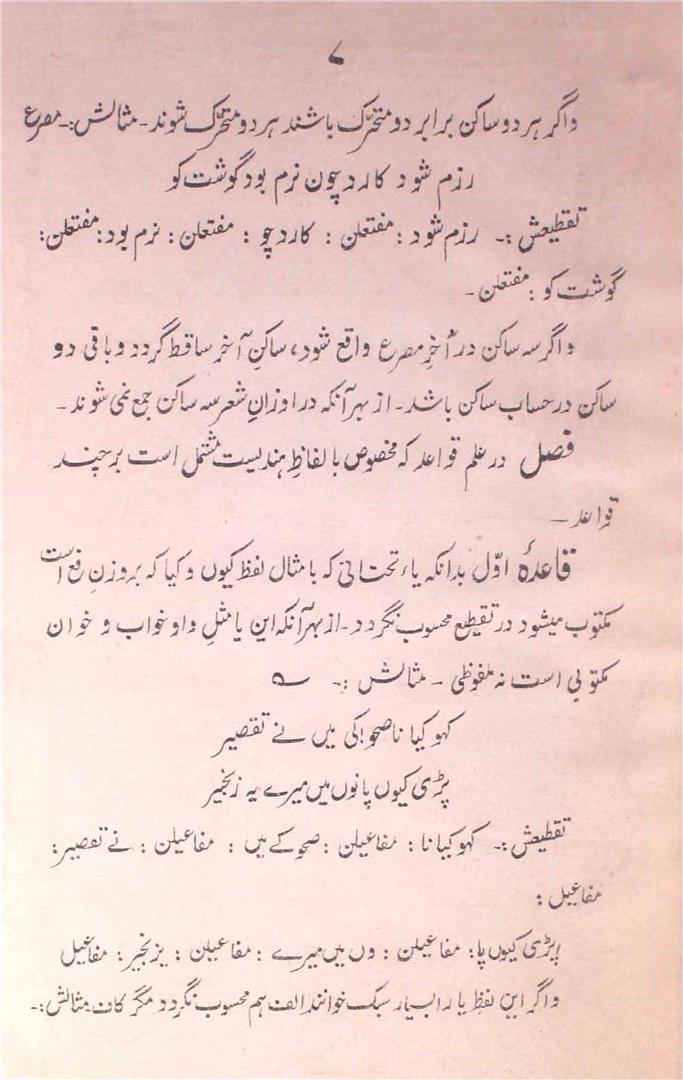 ۷
و اگر ہر دو ساکن برابر دو متحرّک باشند ہر دو متحرّک شوند۔ مثالش:۔ مصرع
رزم شود کارد چون نرم بود گوشت کو
تقطیعش:۔ رزم شود: مفتعلن: کارد چو: مفتعلن: نرم بود: مفتعلن:
گوشت کو: مفتعلن۔
و اگر سہ ساکن در آخرِ مصرع واقع شود، ساکنِ آخر ساقط گردد و باقی دو
ساکن در حساب ساکن باشد۔ از بہر آنکہ در اوزانِ شعر سہ ساکن جمع نمی شوند۔
فصل در علم قواعد کہ مخصوص با لفاظِ ہندیست مشتمل است بر چند
قواعد۔
قاعدۂ اوّل بدانکہ یاء تحتانی کہ با مثال لفظ کیوں و کیا کہ بروزنِ فع است
مکتوب میشود در تقطیع محسوب نگردد۔ از بہر آنکہ این یا مثلِ واو خواب و خوان
مکتوبی است نہ ملفوظی۔ مثالش:۔
کہو کیا ناصحو! کی میں نے تقصیر
پڑی کیوں پانوں میں میرے یہ زنجیر
تقطیعش:۔ کہو کیا نا: مفاعیلن: صحو کے میں: مفاعیلن: نے تقصیر:
مفاعیل:
پڑی کیوں پا: مفاعیلن: وں میں میرے: مفاعیلن: یزنجیر: مفاعیل
و اگر این لفظِ یا را بسیار سبک خوانند الف ہم محسوب نگردد مگر کاف۔ مثالش:۔